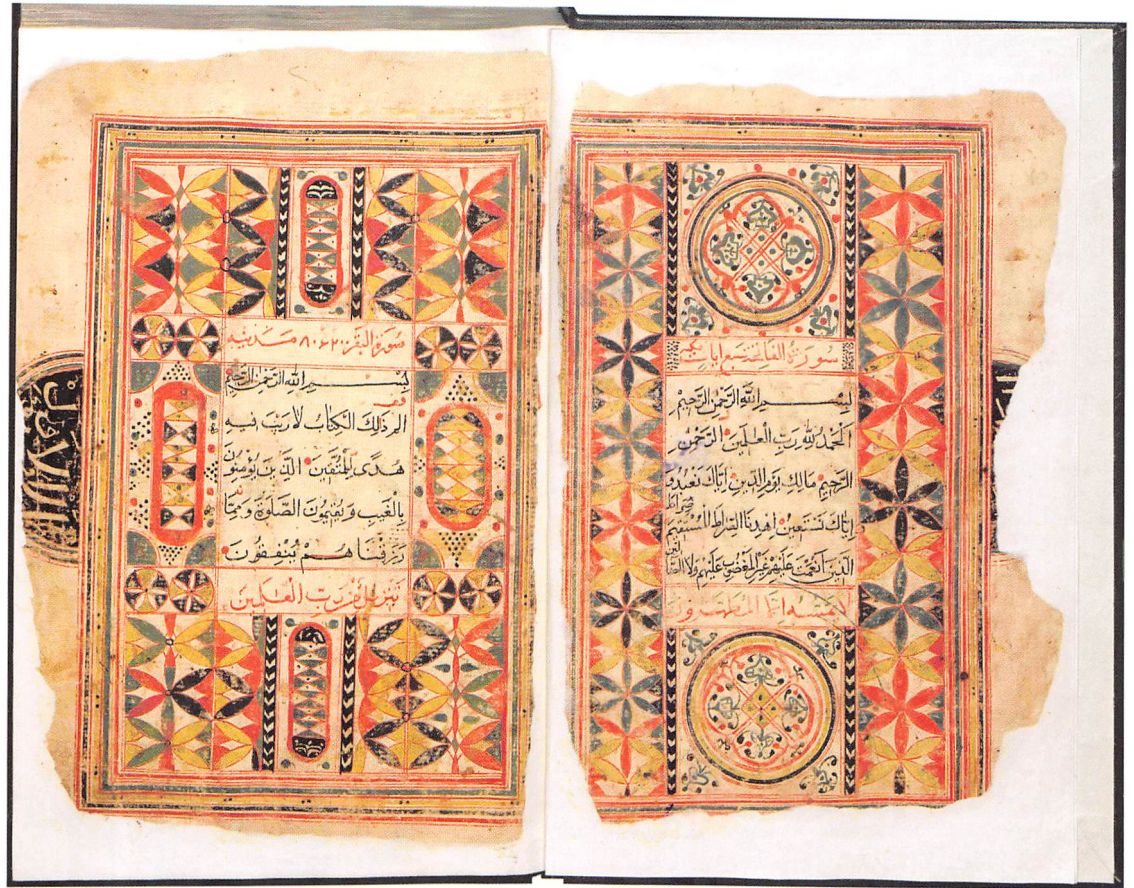 سورة الفاتحة سبع ايات
بِسْمِ اللَّهِ الرَّحْمَنِ الرَّحِيمِ
اَلْحَمْدُ لِلَّهِ رَبِّ الْعَلَمِينَ الرَّحْمَنِ
الرَّحِيمِ مَالِكِ يَوْمِ الدِّينِ اِيَّاكَ نَعْبُدُ وَ
اِيَّاكَ نَسْتَعِينُ اِهْدِنَا الصِّرَاطَ الْمُسْتَقِيمَ صِرَاطَ
الَّذِينَ اَنْعَمْتَ عَلَيْهِمْ غَيْرِ الْمَغْضُوبِ عَلَيْهِمْ وَلَا الضَّالِّينَ
لا يمسه الا المطهرون
سُورَة البقرة مدنيه
بِسْمِ اللَّهِ الرَّحْمَنِ الرَّحِيمِ
الم ذَلِكَ الْكِتَابُ لَا رَيْبَ فِيهِ
هُدًى لِلْمُتَّقِينَ الَّذِينَ يُؤْمِنُونَ
بِالْغَيْبِ وَيُقِيمُونَ الصَّلَوةَ وَمِمَّا
رَزَقْنَا هُمْ يُنْفِقُونَ
تنزيل من رب العلمين